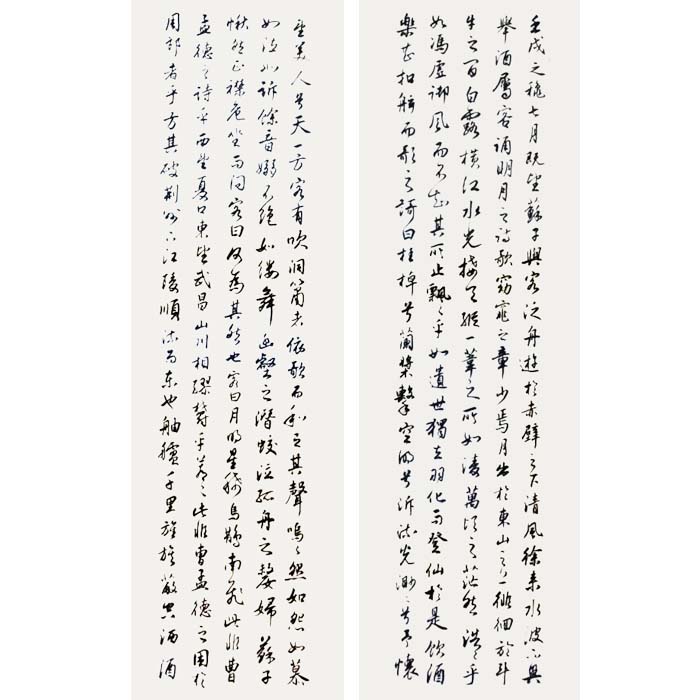 壬戌之秋七月既望蘇子與客泛舟遊於赤壁之下清風徐來水波不興
舉酒屬客誦明月之詩歌窈窕之章少焉月出於東山之上徘徊於斗
牛之間白露橫江水光接天縱一葦之所如凌萬頃之茫然浩々乎
如馮虛御風而不知其所止飄々乎如遺世獨立羽化而登仙於是飲酒
樂甚扣舷而歌之歌曰桂棹兮蘭槳擊空明兮泝流光渺々兮予懷
望美人兮天一方客有吹洞簫者依歌而和之其聲嗚々然如怨如慕
如泣如訴餘音嫋々不絕如縷舞幽壑之潛蛟泣孤舟之嫠婦蘇子
愀然正襟危坐而問客曰何為其然也客曰月明星稀烏鵲南飛此非曹
孟德之詩乎西望夏口東望武昌山川相繆鬱乎蒼々此非曹孟德之困於
周郎者乎方其破荊州下江陵順流而東也舳艫千里旌旗蔽空洒酒